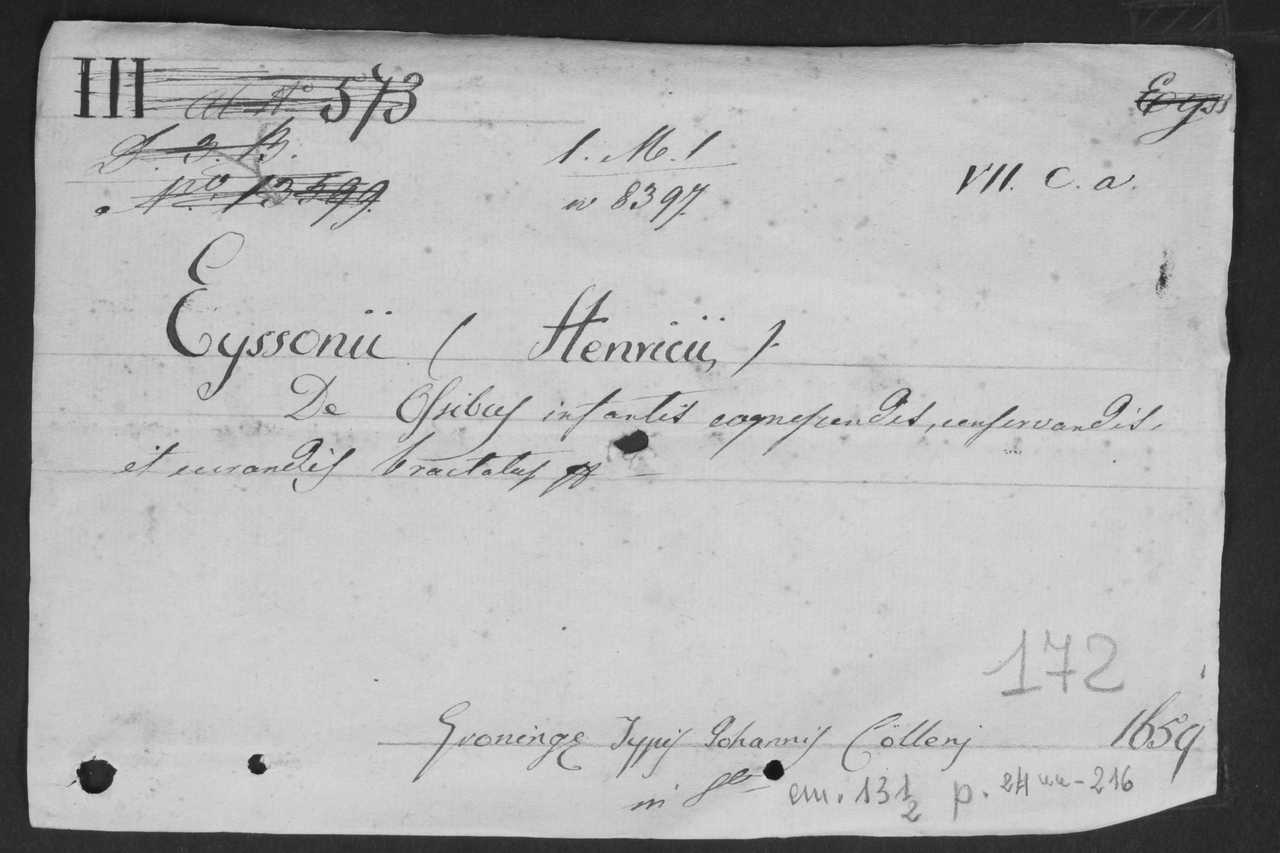 III 573
Eyss
D. 3. B.
1. M. 1
VII. C. a.
No. 13599.
n 8397.
Eyssonii ( Henricii, ).
De Ossibus infantis cognoscendis, conservandis,
et curandis tractatus
172
Groningę Typis Johannis Cölleni 1659
in 8vo cm. 13 1/2 p. 24 - 216